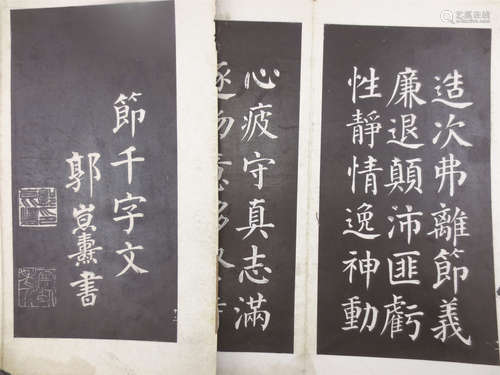 造次弗離節義
廉退顛沛匪虧
性靜情逸神動
心疲守真志滿
逐物意移
節千字文
郭
書